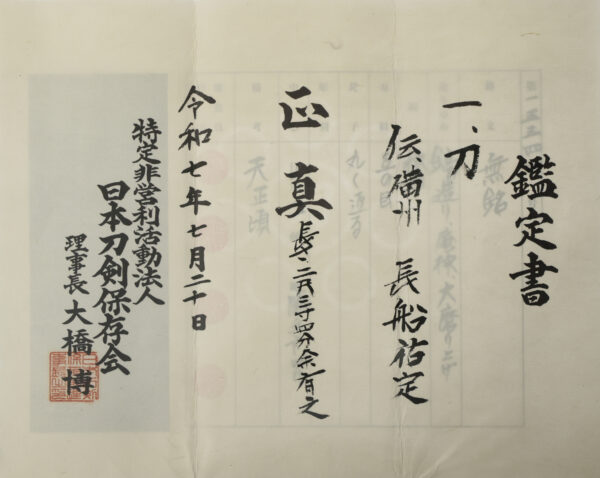 鑑定書
一、刀
伝備州 長船祐定
正真 長サ二尺三寸四分余有之
令和七年七月二十日
特定非営利活動法人
日本刀剣保存会
理事長 大橋博
無銘
丸く返る
天正頃